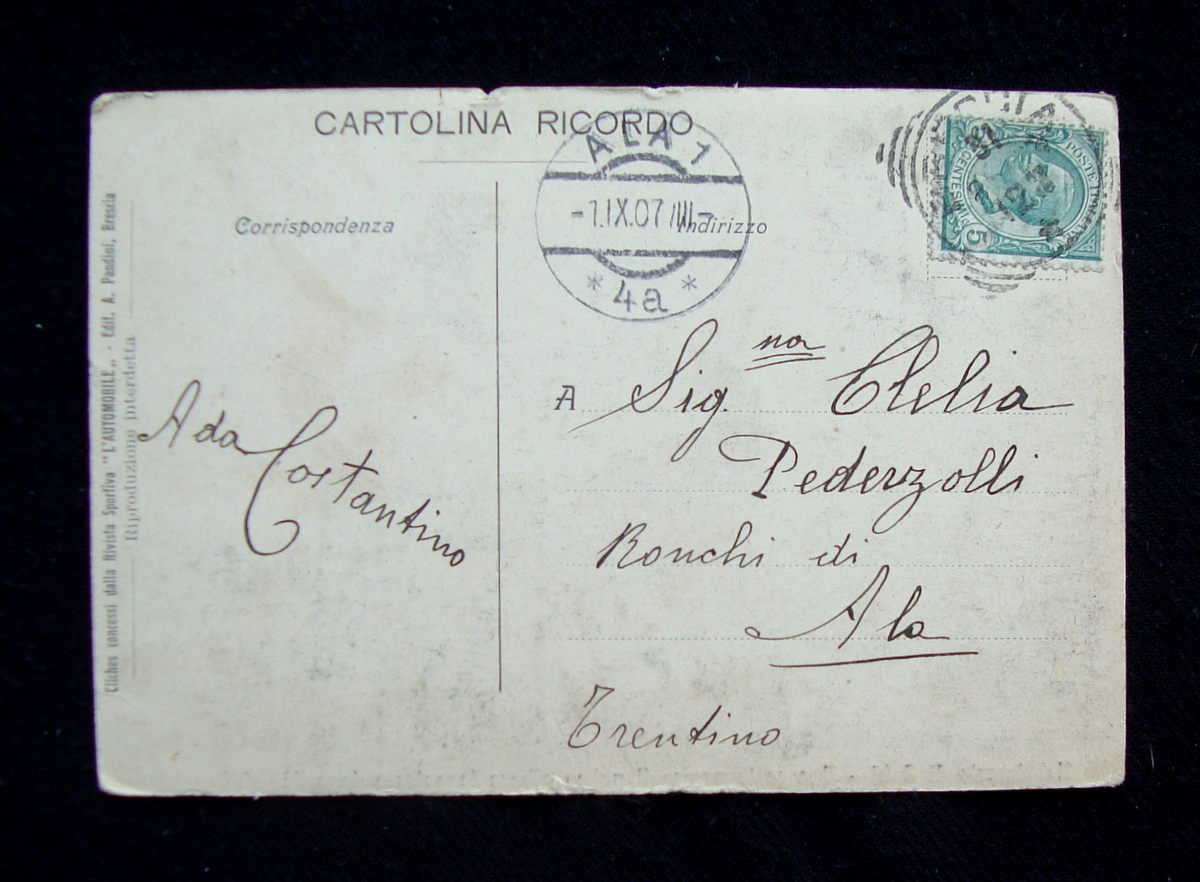 CARTOLINA RICORDO
ALA 1
-1.IX.07
* 4a *
POSTE
5
Corrispondenza
Indirizzo
Cliches concessi dalla Rivista Sportiva "L'AUTOMOBILE„ - Edit. A. Pandini, Brescia
Riproduzione interdetta
Ada
Costantino
A Sig.na Clelia
Pederzolli
Ronchi di
Ala
Trentino